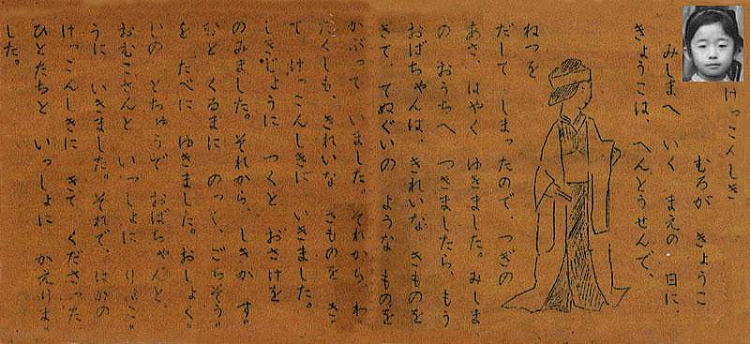 けっこんしき
むろが きょうこ
みしまへ いく まえの 日に、
きょうこは、へんとうせんで、
ねつを
だして しまったので、つぎの
あさ、はやく ゆきました。みしま
の おうちへ つきましたら、もう
おばちゃんは、きれいな きものを
きて、てぬぐいの ような ものを
かぶって いました。それから、わ
たくしも、きれいな きものを き
て、けっこんしきに いきました。
しきじょうに つくと おさけを
のみました。それから、しきが す
むと くるまに のって、ごちそう
を たべに ゆきました。おしょく
じの とちゅうで おばちゃんと、
おむこさんと いっしょに りょこ
うに いきました。それで、ほかの
けっこんしきに きて くださった
ひとたちと いっしょに かえりま
した。